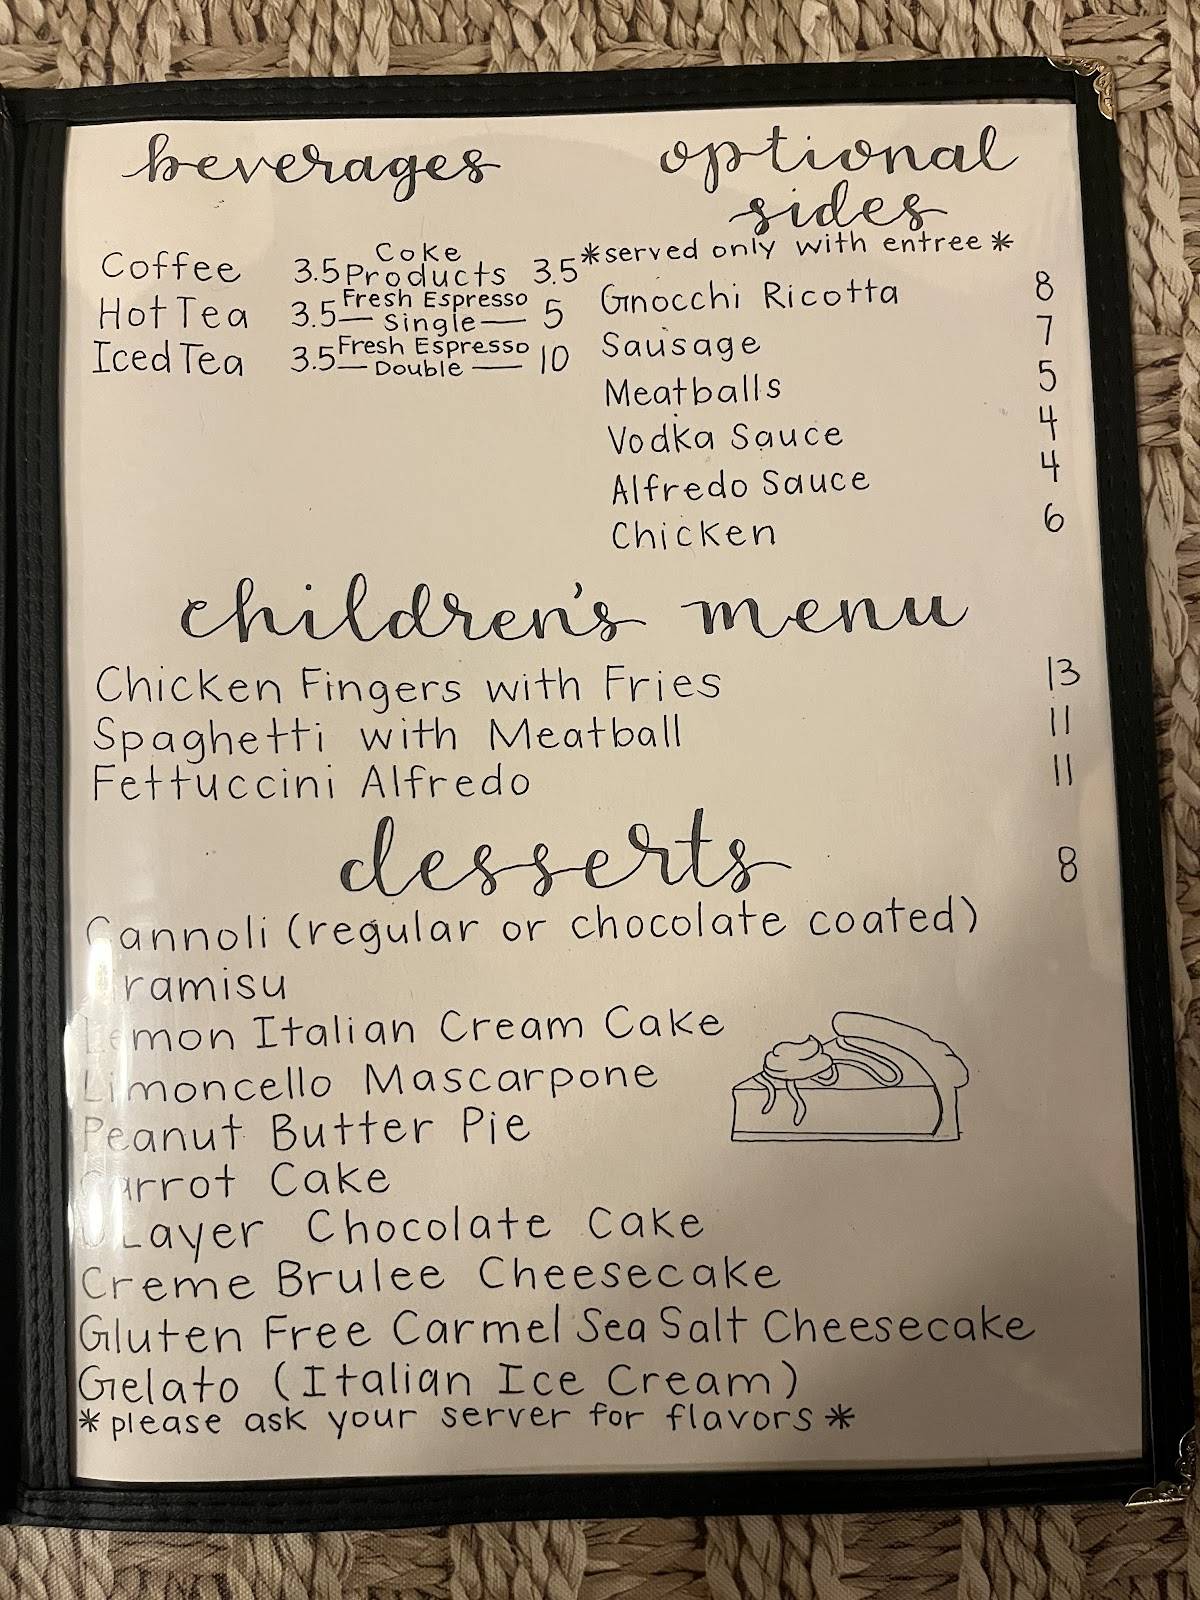 beverages
Coffee 3.5
Hot Tea 3.5
Iced Tea 3.5
Coke
Products 3.5
Fresh Espresso
Single 5
Fresh Espresso
Double 10
optional
sides
*served only with entree*
Gnocchi Ricotta 8
Sausage 7
Meatballs 5
Vodka Sauce 4
Alfredo Sauce 4
Chicken 6
children's menu
Chicken Fingers with Fries 13
Spaghetti with Meatball 11
Fettuccini Alfredo 11
desserts 8
Cannoli (regular or chocolate coated)
Lemon Italian Cream Cake
Limoncello Mascarpone
Peanut Butter Pie
Carrot Cake
Layer Chocolate Cake
Creme Brulee Cheesecake
Gluten Free Carmel Sea Salt Cheesecake
Gelato (Italian Ice Cream)
*please ask your server for flavors*